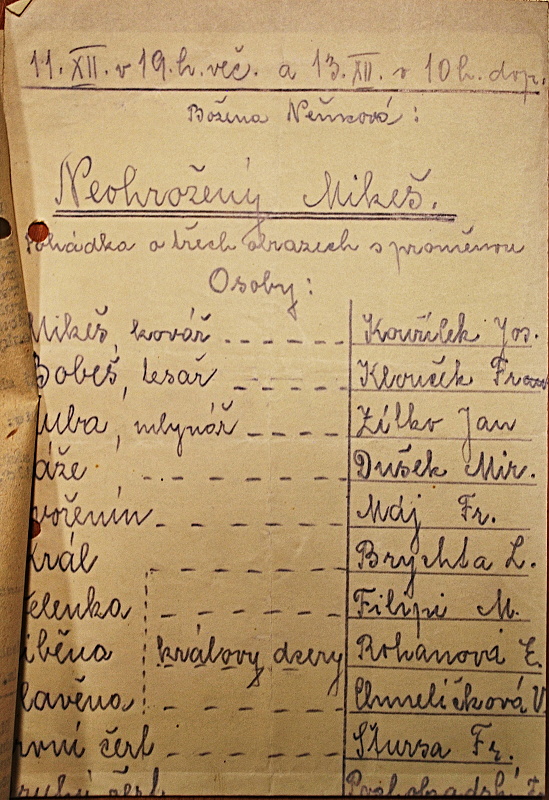 11. XII. v 19. h. več. a 13. XII. v 10 h. dop.
Božena Němcová:
Neohrožený Mikeš.
Pohádka o třech obrazech s proměnou
Osoby:
Mikeš, kovář Kouřílek Jos.
Bobeš, tesař Klouček Fran
uba, mlynář Zítko Jan
áže Dušek Mir.
vořenín Máj Fr.
král Brychta L.
elenka Filipi M.
iběna královy dcery Rohanová E.
lavěna Chmelíčková V.
rvní čert Štursa Fr.
ruhý čert